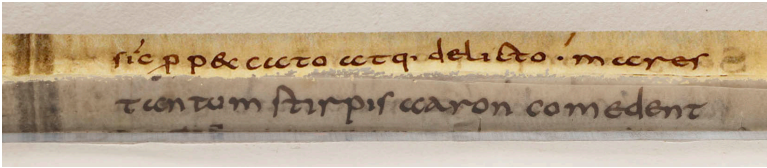 sic p p&ccato atq· delicto · mares
tantum stirpis aaron comedent